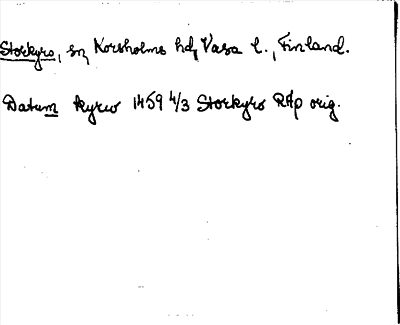 Storkyro, sn, Korsholms hd, Vasa l., Finland.
Datum kyrw 1459 4/3 Storkyro RAp orig.